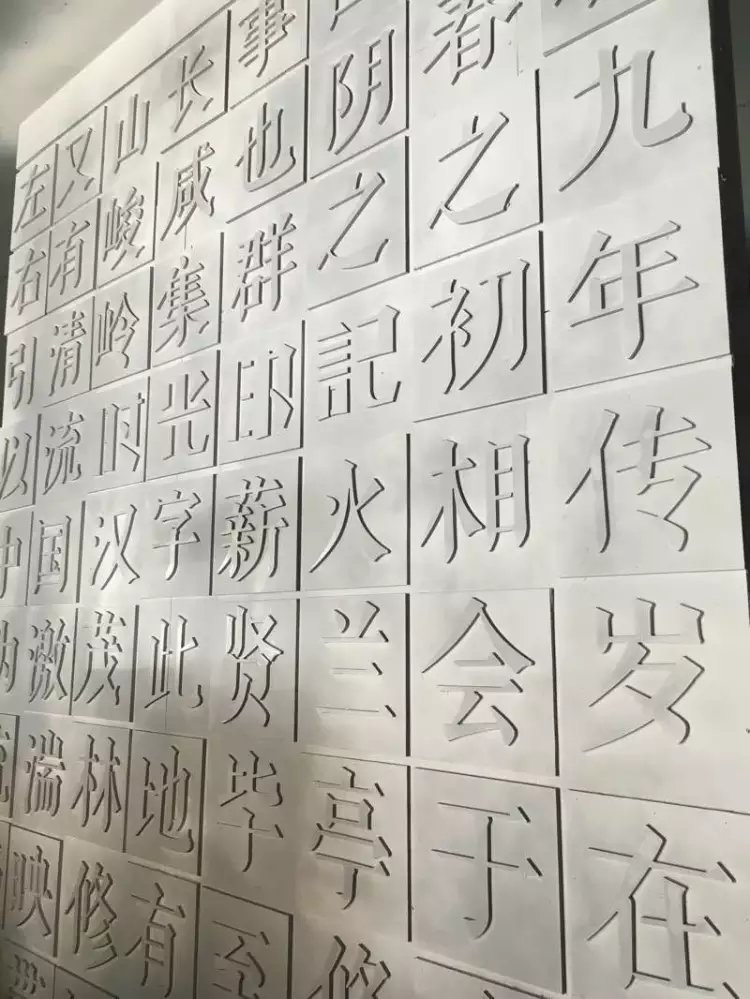 九年传岁在
春之初相会于
阴之記火兰亭修
事也群印薪贤毕至
长咸集光字此地有
山峻岭时汉茂林修
又有清流国激湍映带
左右引以中为流